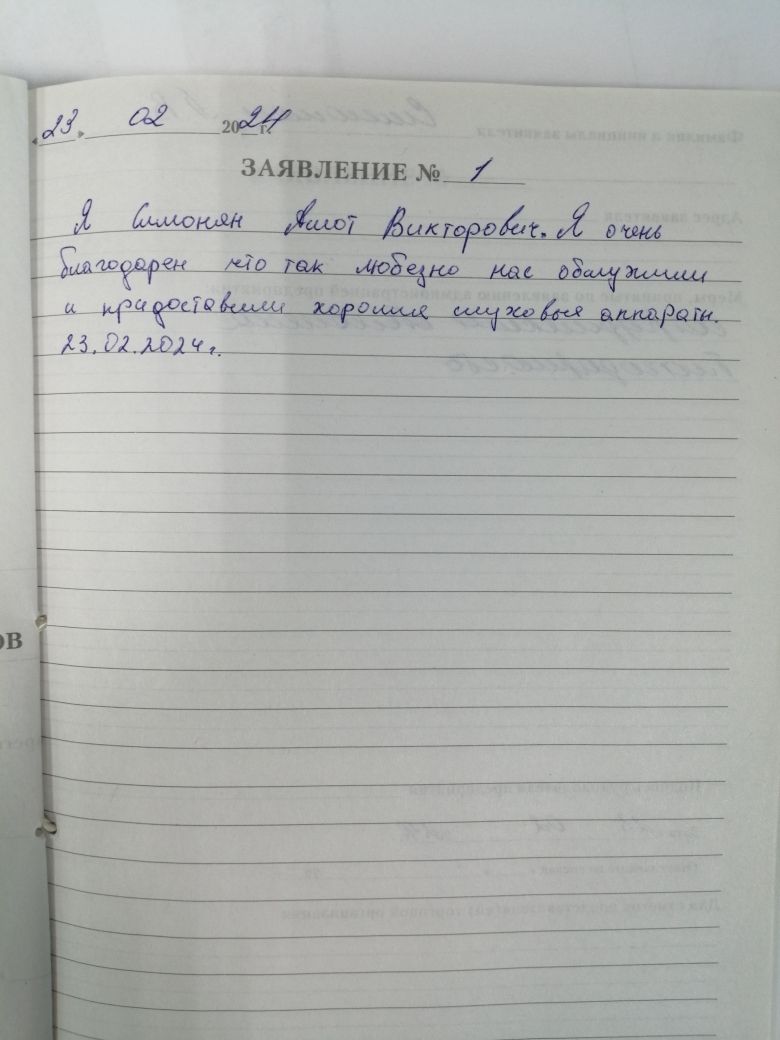 «23» 02 2024 г.
ЗАЯВЛЕНИЕ № 1
Я Симонян Ашот Викторович. Я очень
благодарен что так любезно нас обслужили
и придоставили хорошие слуховые аппараты.
23.02.2024 г.
ОВ